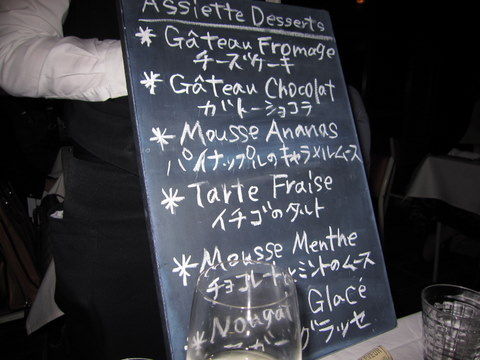 Assiette Desserts
* Gâteau Fromage
チーズケーキ
* Gâteau Chocolat
ガトーショコラ
* Mousse Ananas
パイナップルのキャラメルムース
* Tarte Fraise
イチゴのタルト
* Mousse Menthe
チョコレートミントのムース
* Nougat Glacé
ヌガーグラッセ